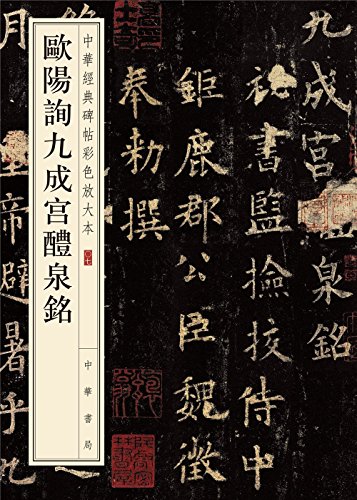 成宫醴泉銘
秘書監撿挍侍中
鉅鹿郡公臣魏徵
奉勑撰
中華經典碑帖彩色放大本
歐陽詢九成宫醴泉銘
中華書局
帝避暑乎九